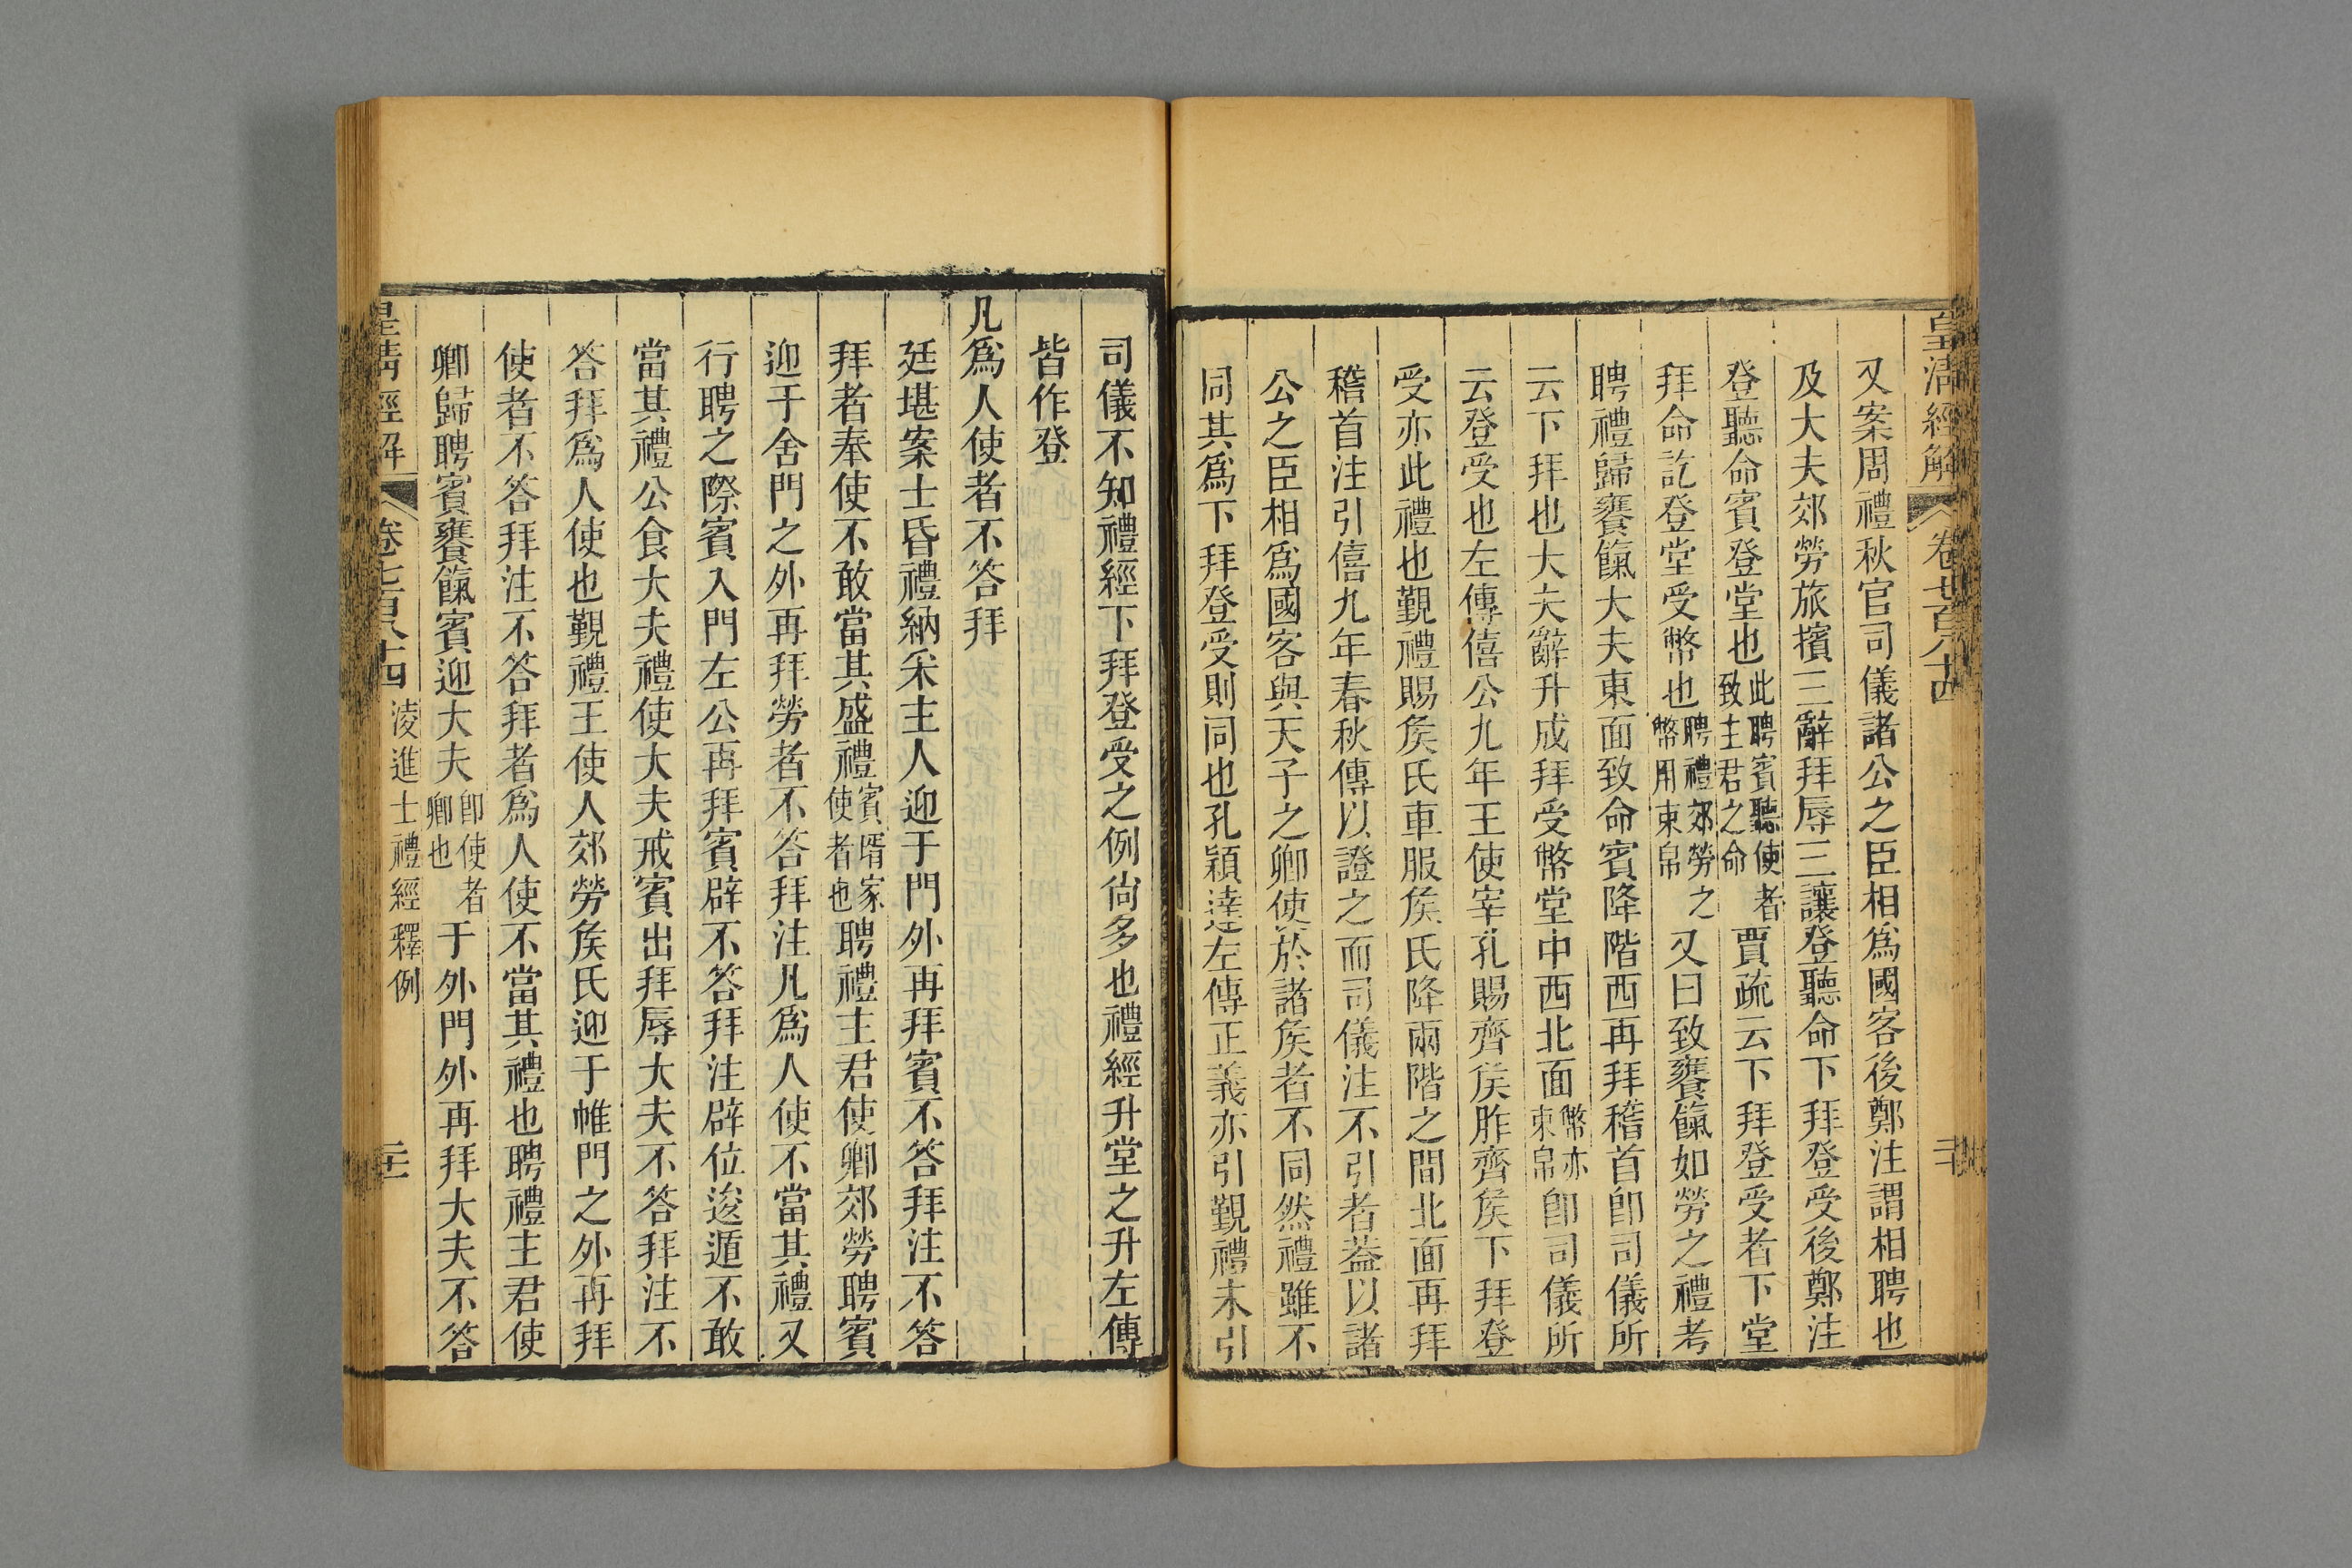 皇清經解 卷七百八十四 二十
又案周禮秋官司儀諸公之臣相爲國客後鄭注謂相聘也
及大夫郊勞旅擯三辭拜辱三讓登聽命下拜登受後鄭注
登聽命賓登堂也此聘賓聽使者致主君之命賈疏云下拜登受者下堂
拜命訖登堂受幣也聘禮郊勞之幣用束帛又曰致饔餼如勞之禮考
聘禮歸饔餼大夫東面致命賓降階西再拜稽首卽司儀所
云下拜也大夫辭升成拜受幣堂中西北面幣亦束帛卽司儀所
云登受也左傳僖公九年王使宰孔賜齊矦胙齊矦下拜登
受亦此禮也覲禮賜矦氏車服矦氏降兩階之間北面再拜
稽首注引僖九年春秋傳以證之而司儀注不引者葢以諸
公之臣相爲國客與天子之卿使於諸矦者不同然禮雖不
同其爲下拜登受則同也孔穎達左傳正義亦引覲禮未引
司儀不知禮經下拜登受之例尙多也禮經升堂之升左傳
皆作登
凡爲人使者不答拜
廷堪案士昏禮納采主人迎于門外再拜賓不答拜注不答
拜者奉使不敢當其盛禮賓壻家使者也聘禮主君使卿郊勞聘賓
迎于舍門之外再拜勞者不答拜注凡爲人使不當其禮又
行聘之際賓入門左公再拜賓辟不答拜注辟位逡遁不敢
當其禮公食大夫禮使大夫戒賓出拜辱大夫不答拜注不
答拜爲人使也覲禮王使人郊勞矦氏迎于帷門之外再拜
使者不答拜注不答拜者爲人使不當其禮也聘禮主君使
卿歸聘賓饔餼賓迎大夫卽使者卿也于外門外再拜大夫不答
皇清經解 卷七百八十四 淩進士禮經釋例 二十一